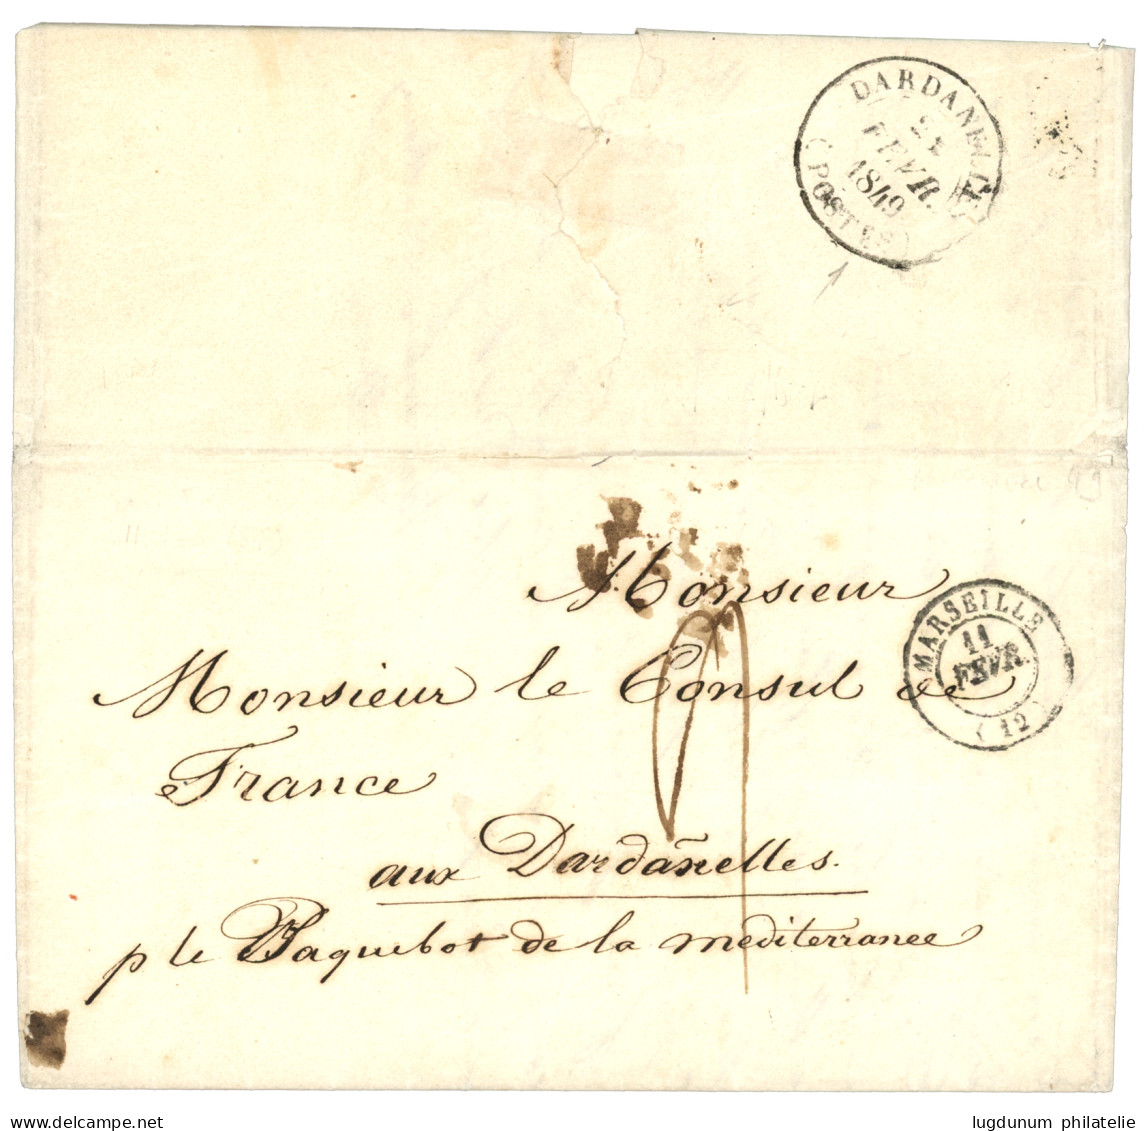 DARDANELLES
FEVR.
1849
(POSTES)
Monsieur
Monsieur le Consul de
France
aux Dardanelles.
p le Paquebot de la mediterranee
MARSEILLE
11
FEVR.
(12)
lugdunum philatelie